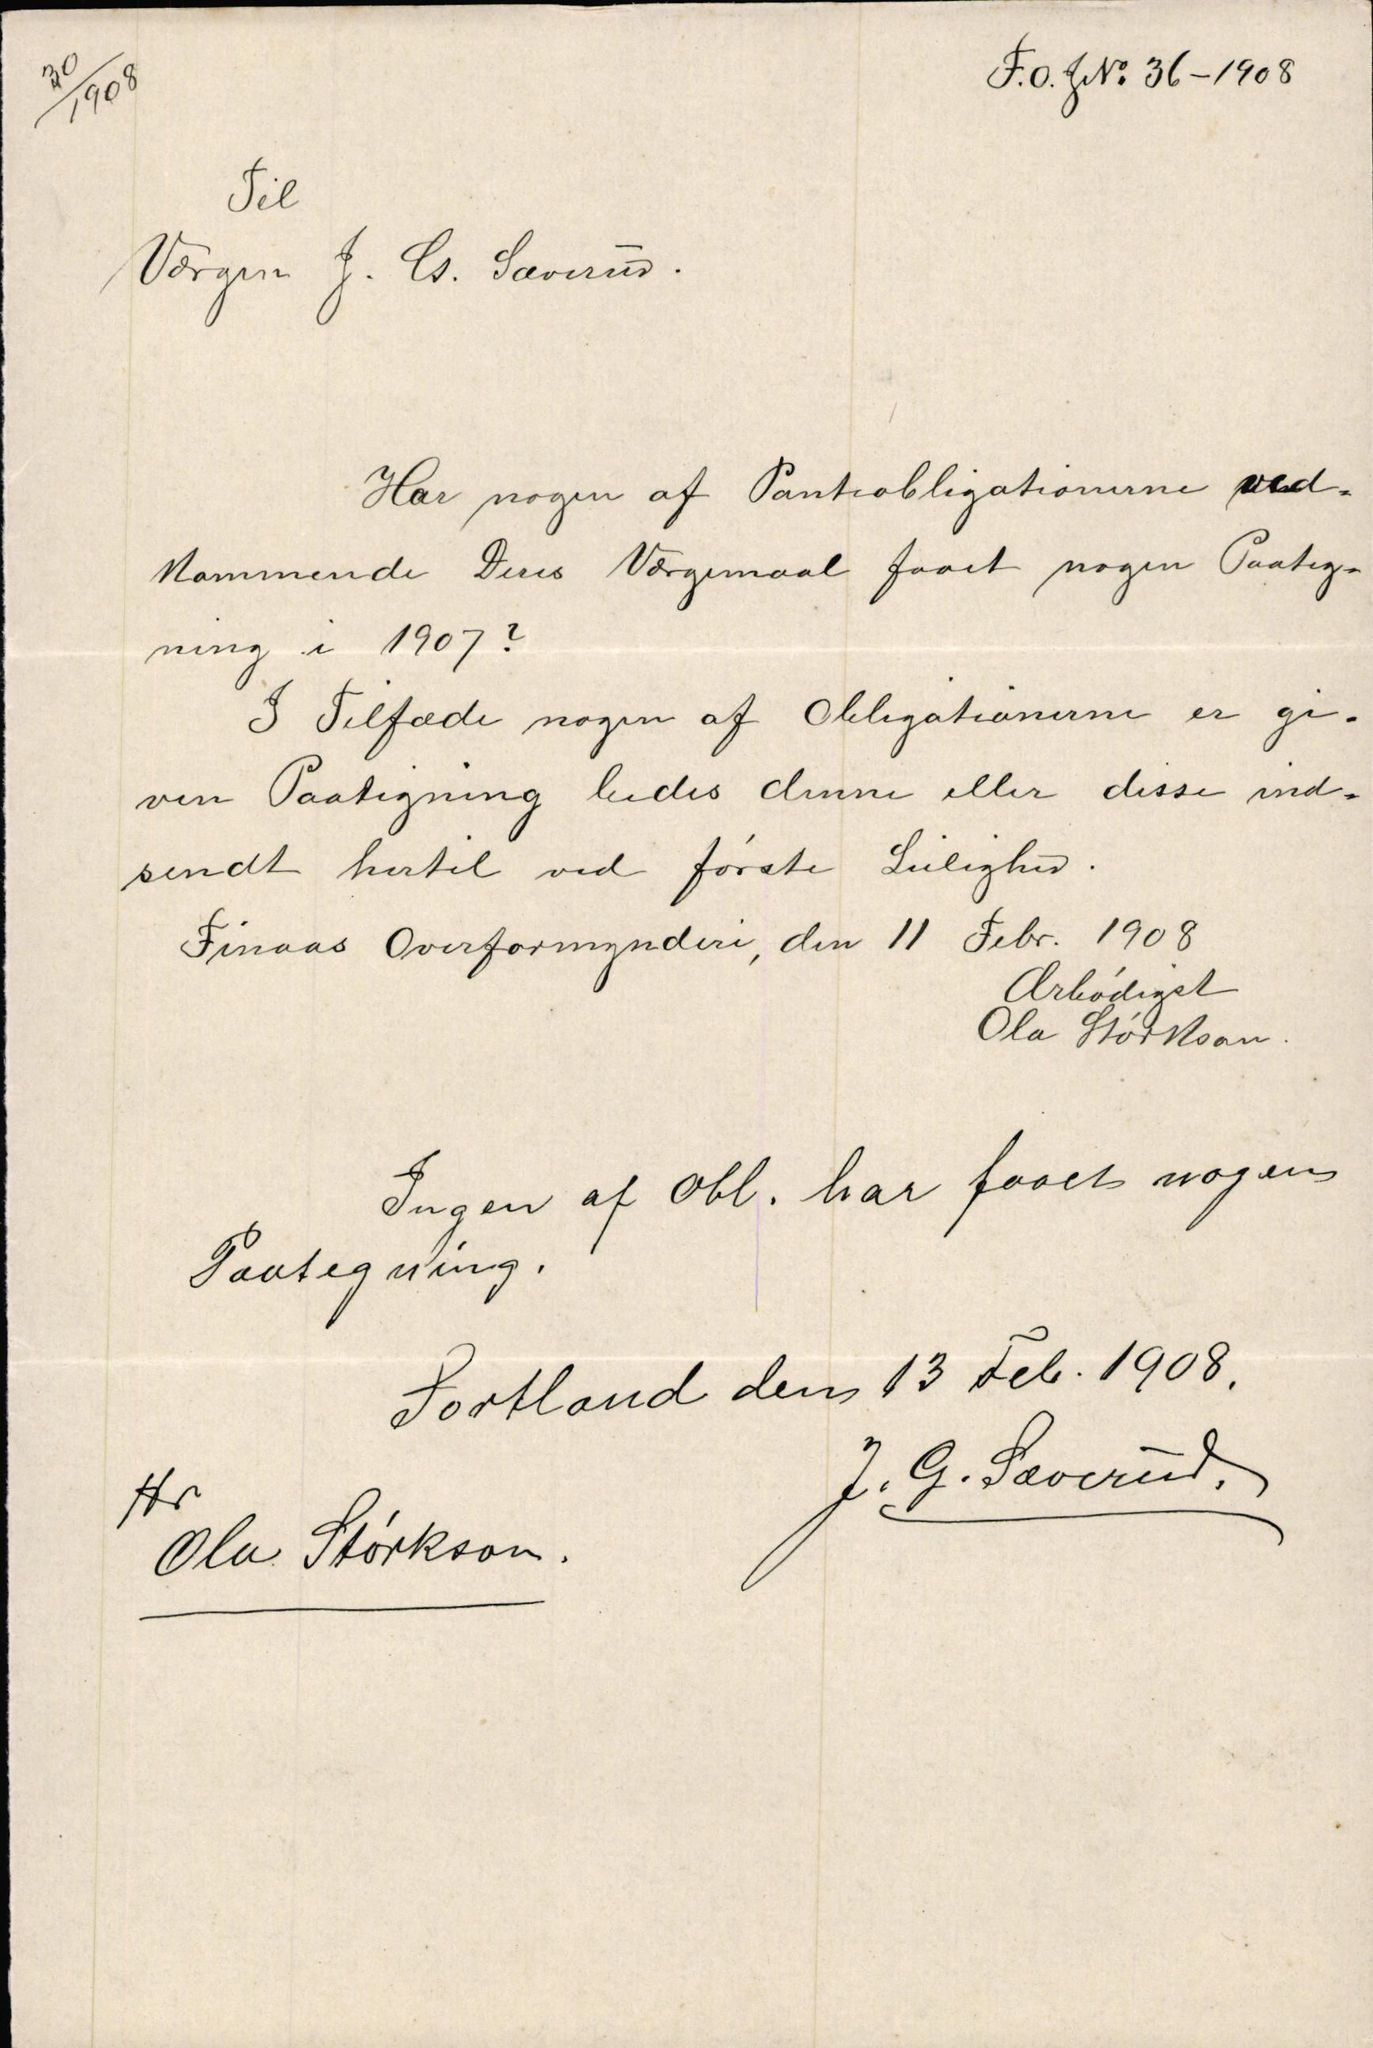 30/1908
F.O. JNo. 36-1908
Til
Værgen J. G. Sæverud.
Har nogen af Panteobligationerne ved-
kommende Deres Værgemaal faaet nogen Paateg-
ning i 1907?
I Tilfæde nogen af Obligationerne er gi-
ven Paategning bedes denne eller disse ind-
sendt hertil ved første Leilighed.
Finaas Overformynderi, den 11 Febr. 1908
Ærbødigst
Ola Størkson.
Ingen af Obl. har faaet nogen
Paategning.
Fortland den 13 Feb. 1908.
J. G. Sæverud.
Hr
Ola Størkson.